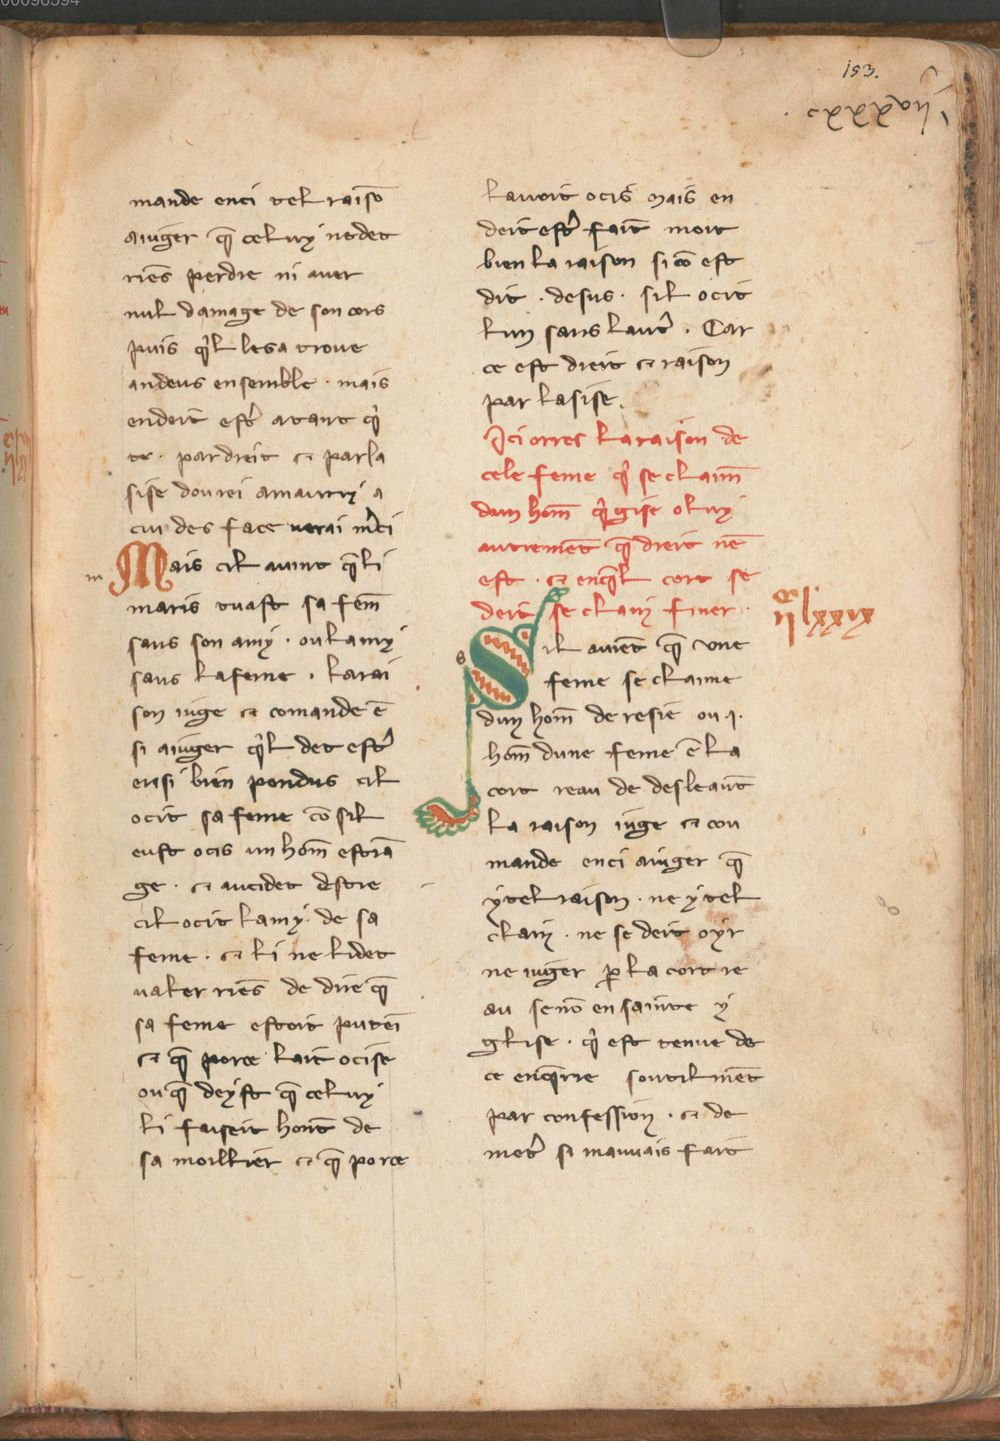 153.
mande enci tel raisō
aiuger q̄ celuy ne det
riēs perdre ni auer
nul damage de son cors
puis q̾l les a troue
andeus ensemble · mais
en doit est̾ atant q̾
te · par dreit ⁊ par la
sise dou rei amaury a
cui des face uerai m̾ci
m
Mais cil auint q̄ li
maris tuast sa fem̄
sans son amy · ou lamy
sans la feme · la rai
son iuge ⁊ comande ē
si aiuger q̾l det est̾
ensi bien pendus cil
ocit sa feme cō sil
eust ocis un hom̄ estrā
ge · ⁊ aucidet
cil ocit lamy · de sa
feme · ⁊ li ne li det
ualer riēs de dire q̄
sa feme estoit puteī
⁊ q̄ porce lait ocise
ou q̄ deyst q̄ celuy
li faiseit hont̄ de
sa moillier ⁊ q̄ porce
lauoit ocis mais en
deit est̾ fait mort
bien la raison si cō est
dit · desus · sil ocit
lun sans laut̾ · Car
ce est dreit ⁊ raison
par lasise.
Ici orres la raison de
cele feme q̾ se claim̄
dun hom̄ q̾ gise o luy
autremēt q̄ dreit nē
est · ⁊ en q̄l cort se
deit se claim finer ·
Sil auiēt q̄ vne
feme se claime
dun hom̄ de resie ou ·i·
hom̄ dune feme ē la
cort reau de desleaut̄
la raison iuge ⁊ con
mande enci aiuger q̄
ytel raison · ne ytel
claim · ne se deit oyr
ne iuger ꝑ la cort re
au se nō en sainte y
glise · q̾ est tenue de
ce enq̄rre soutilmēt
par confession · ⁊ de
met̾ si mauuais fait